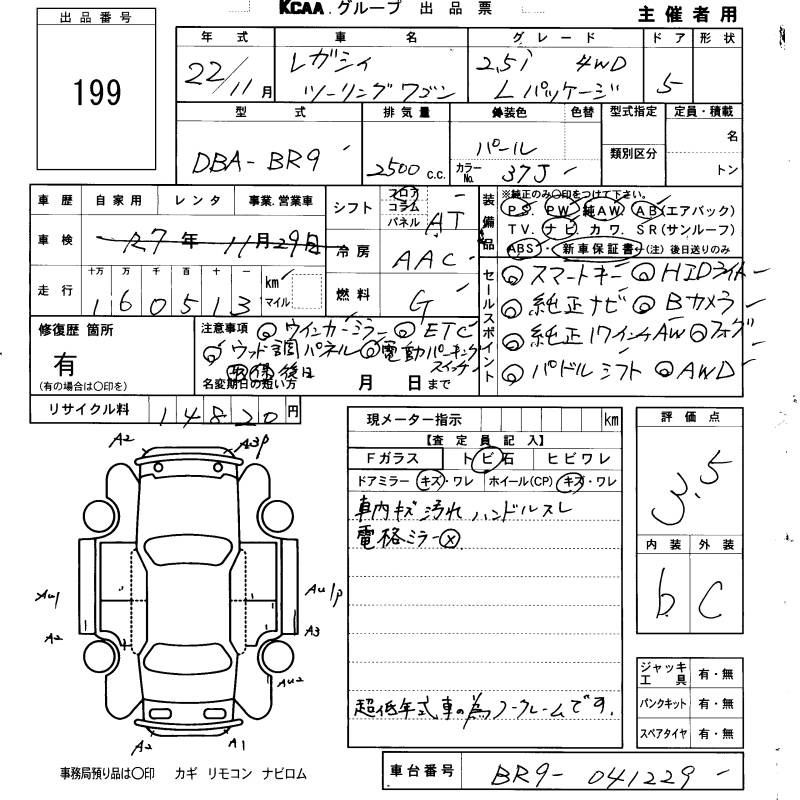 KCAA.グループ 出品票
主催者用
出品番号
199
年式 車名 グレード ドア 形状
22/11月 レガシィ ツーリングワゴン 2.5i 4WD Lパッケージ 5
型式 排気量 外装色 色替 型式指定 定員・積載
DBA-BR9 2500 c.c. パール 類別区分 名
カラーNo. 37J トン
車歴 自家用 レンタ 事業.営業車
車検 R7年11月29日
走行 十万 万 千 百 十 一
160513 km マイル
シフト フロア コラム パネル AT
冷房 AAC
燃料 G
装備品 ※純正のみ○印をつけて下さい。
PS. PW. 純AW. AB(エアバック)
TV. ナビ. カワ. SR(サンルーフ)
ABS・新車保証書←(注)後日送りのみ
セールスポイント
◎スマートキー ◎HIDライト
◎純正ナビ ◎Bカメラ
◎純正17インチAW ◎フォグ
◎パドルシフト ◎AWD
修復歴 箇所
有
(有の場合は○印を)
注意事項 ◎ウインカーミラー ◎ETC
◎ウッド調パネル ◎電動パーキングスイッチ
取保後日
名変期日の短い方 月 日まで
リサイクル料 14820円
現メーター指示 km
【査定員記入】
Fガラス トビ石 ヒビワレ
ドアミラー キズ・ワレ ホイール(CP) キズ・ワレ
車内キズ汚れ ハンドルスレ
電格ミラー✕
超低年式車の為ノークレームです.
評価点
3.5
内装 外装
b C
ジャッキ工具 有・無
パンクキット 有・無
スペアタイヤ 有・無
A2 A3P
AU1 AU1P
A2 A3
AU2
A2 A1
事務局預り品は○印 カギ リモコン ナビロム
車台番号 BR9-041229